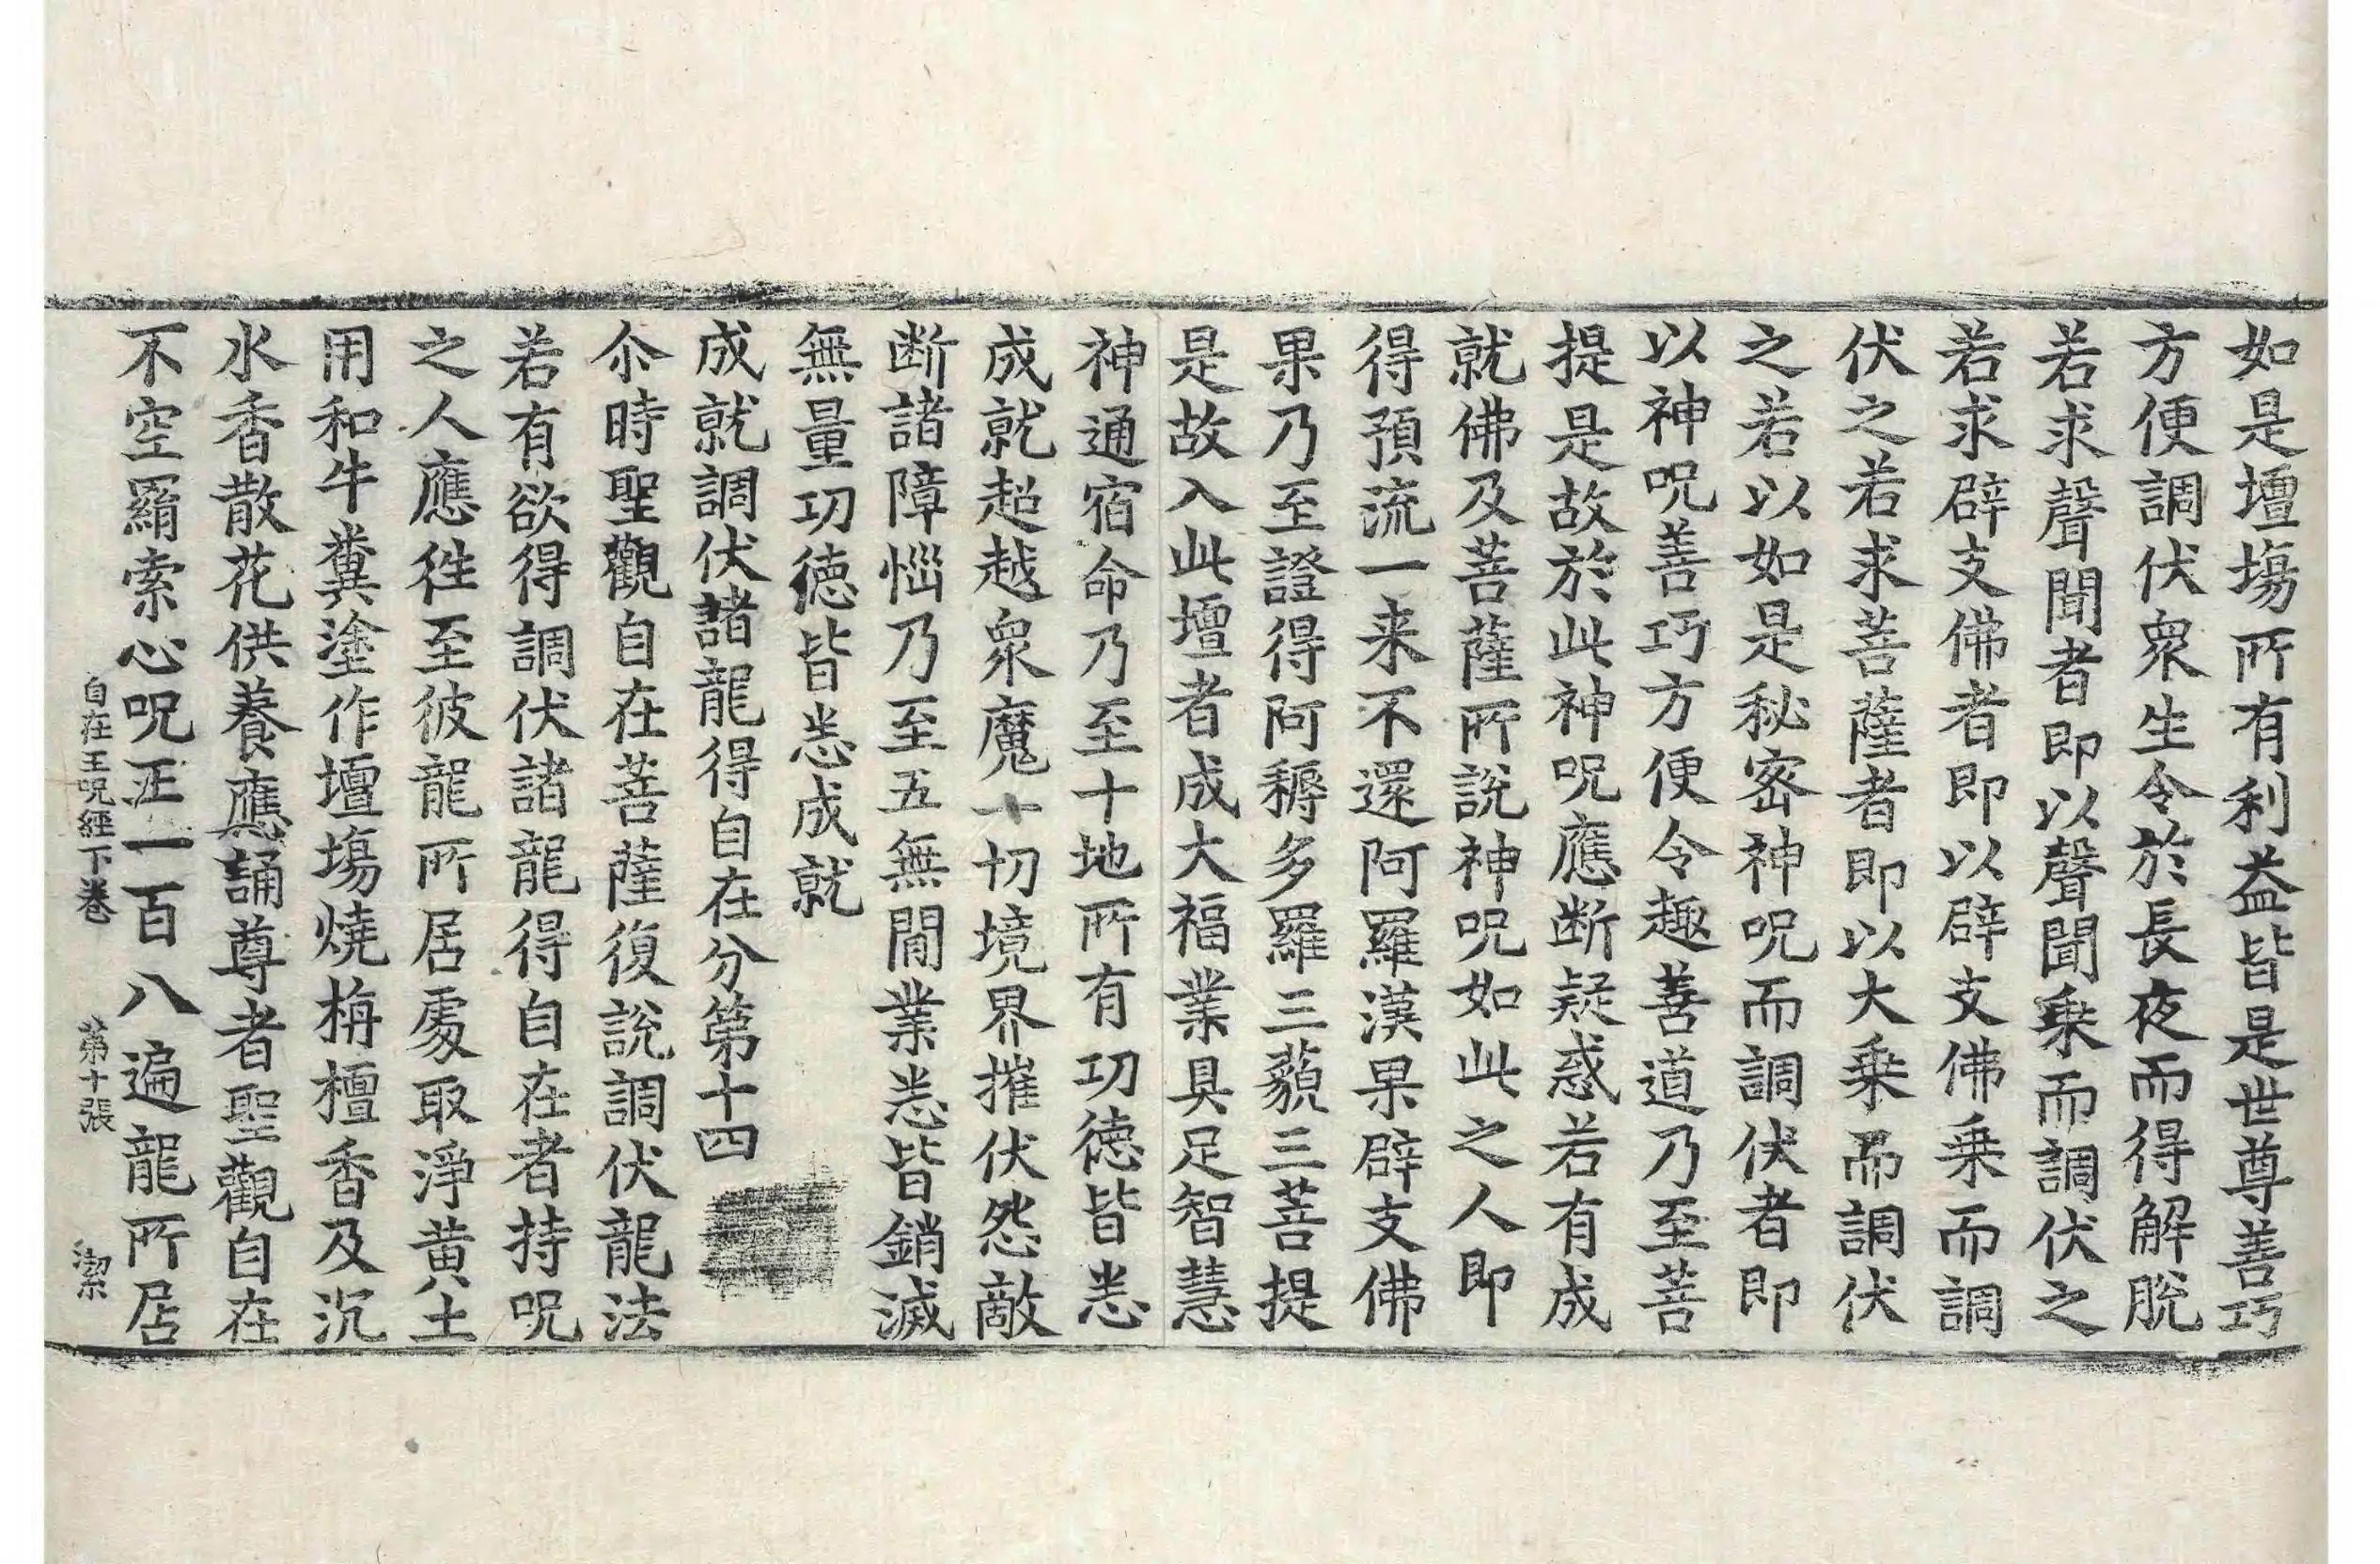 如是壇塲所有利益皆是世尊善巧
方便調伏衆生令於長夜而得解脫
若求聲聞者即以聲聞乗而調伏之
若求辟支佛者即以辟支佛乗而調
伏之若求菩薩者即以大乗而調伏
之若以如是秘密神呪而調伏者即
以神呪善巧方便令趣善道乃至菩
提是故於此神呪應断疑惑若有成
就佛及菩薩所說神呪如此之人即
得預流一来不還阿羅漢果辟支佛
果乃至證得阿耨多羅三藐三菩提
是故入此壇者成大福業具足智慧
神通宿命乃至十地所有功徳皆悉
成就超越衆魔十切境界摧伏怨敵
断諸障惱乃至五無閒業悉皆銷滅
無量功徳皆悉成就
成就調伏諸龍得自在分第十四
尒時聖觀自在菩薩復說調伏龍法
若有欲得調伏諸龍得自在者持呪
之人應徃至彼龍所居處取淨黄土
用和牛糞塗作壇塲燒栴檀香及沉
水香散花供養應誦尊者聖觀自在
不空羂索心呪正一百八遍龍所居
自在王呪經下卷 第十張 潔